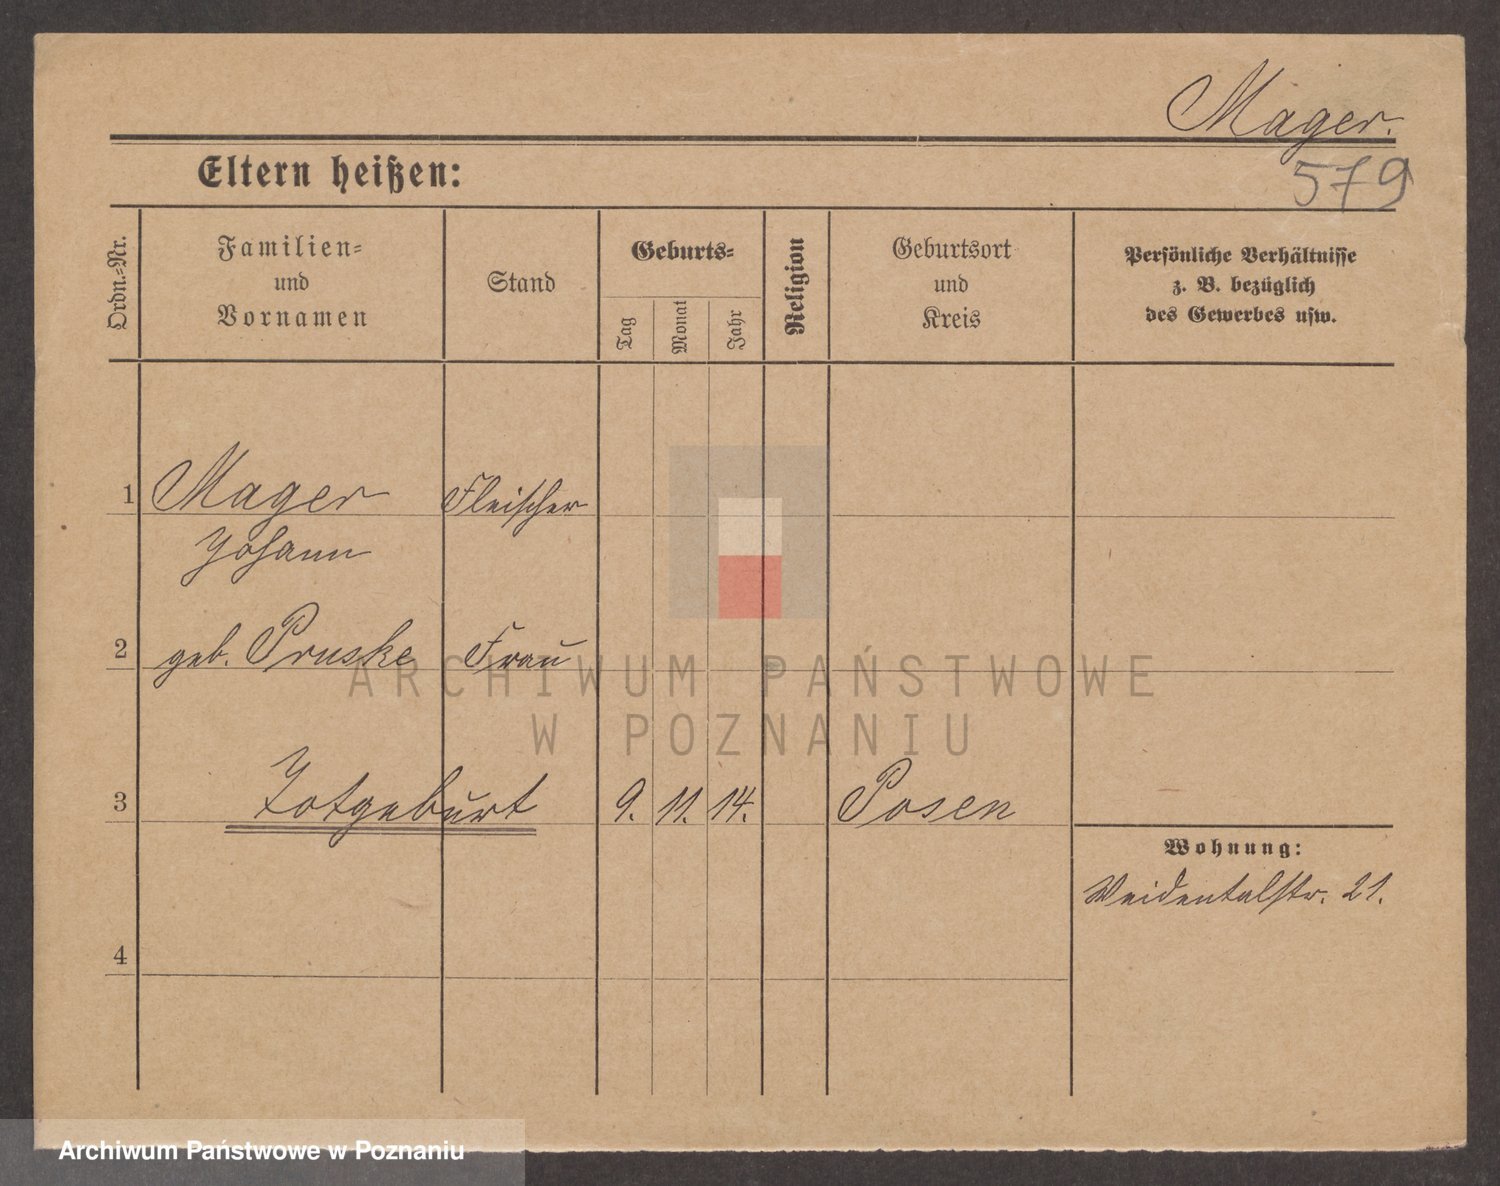 Mager.
579
Eltern heißen:
Ordn.=Nr.
Familien=
und
Vornamen
Stand
Geburts=
Tag
Monat
Jahr
Religion
Geburtsort
und
Kreis
Persönliche Verhältnisse
z. B. bezüglich
des Gewerbes usw.
1 Mager Fleischer
Johann
2 geb. Pruske Frau
ARCHIWUM PAŃSTWOWE
W POZNANIU
3 Totgeburt 9. 11. 14. Posen
Wohnung:
Weidentalstr. 21.
4
Archiwum Państwowe w Poznaniu